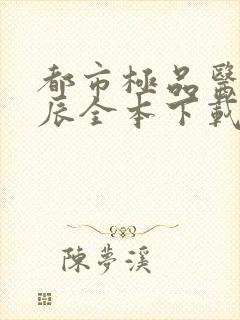 都市極品醫
辰全本下載
陳夢溪